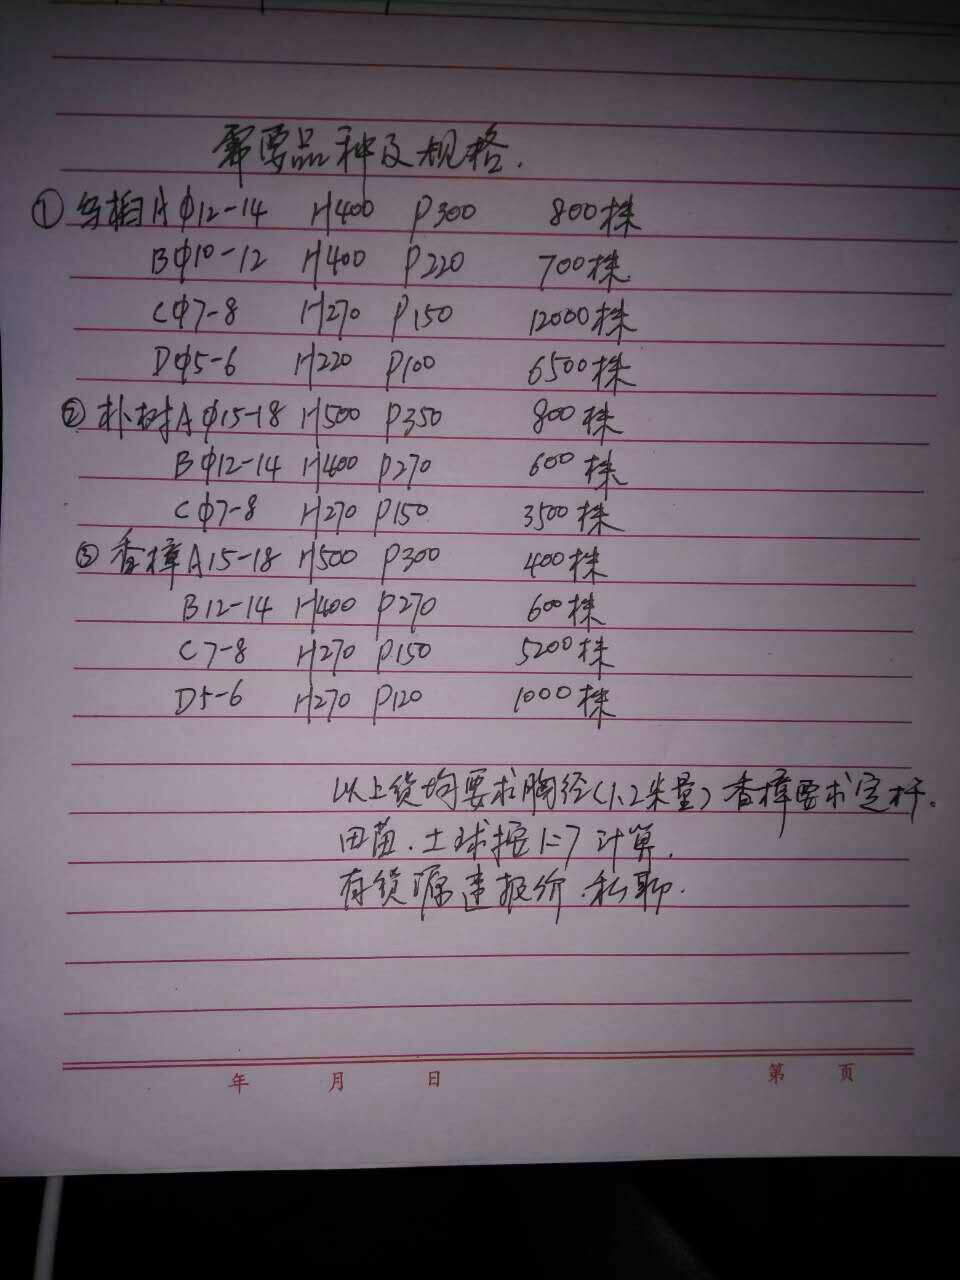 需要品种及规格.
① 乌桕 A Φ12-14 H400 P300 800株
B Φ10-12 H400 P220 700株
C Φ7-8 H270 P150 12000株
D Φ5-6 H220 P100 6500株
② 朴树 A Φ15-18 H500 P350 800株
B Φ12-14 H400 P270 600株
C Φ7-8 H270 P150 3500株
③ 香樟 A 15-18 H500 P300 400株
B 12-14 H400 P270 600株
C 7-8 H270 P150 5200株
D 5-6 H270 P120 1000株
以上货均要求胸径(1.2米量) 香樟要求定杆.
田苗.土球按1:7计算.
有货源速报价.私聊.
年 月 日 第 页